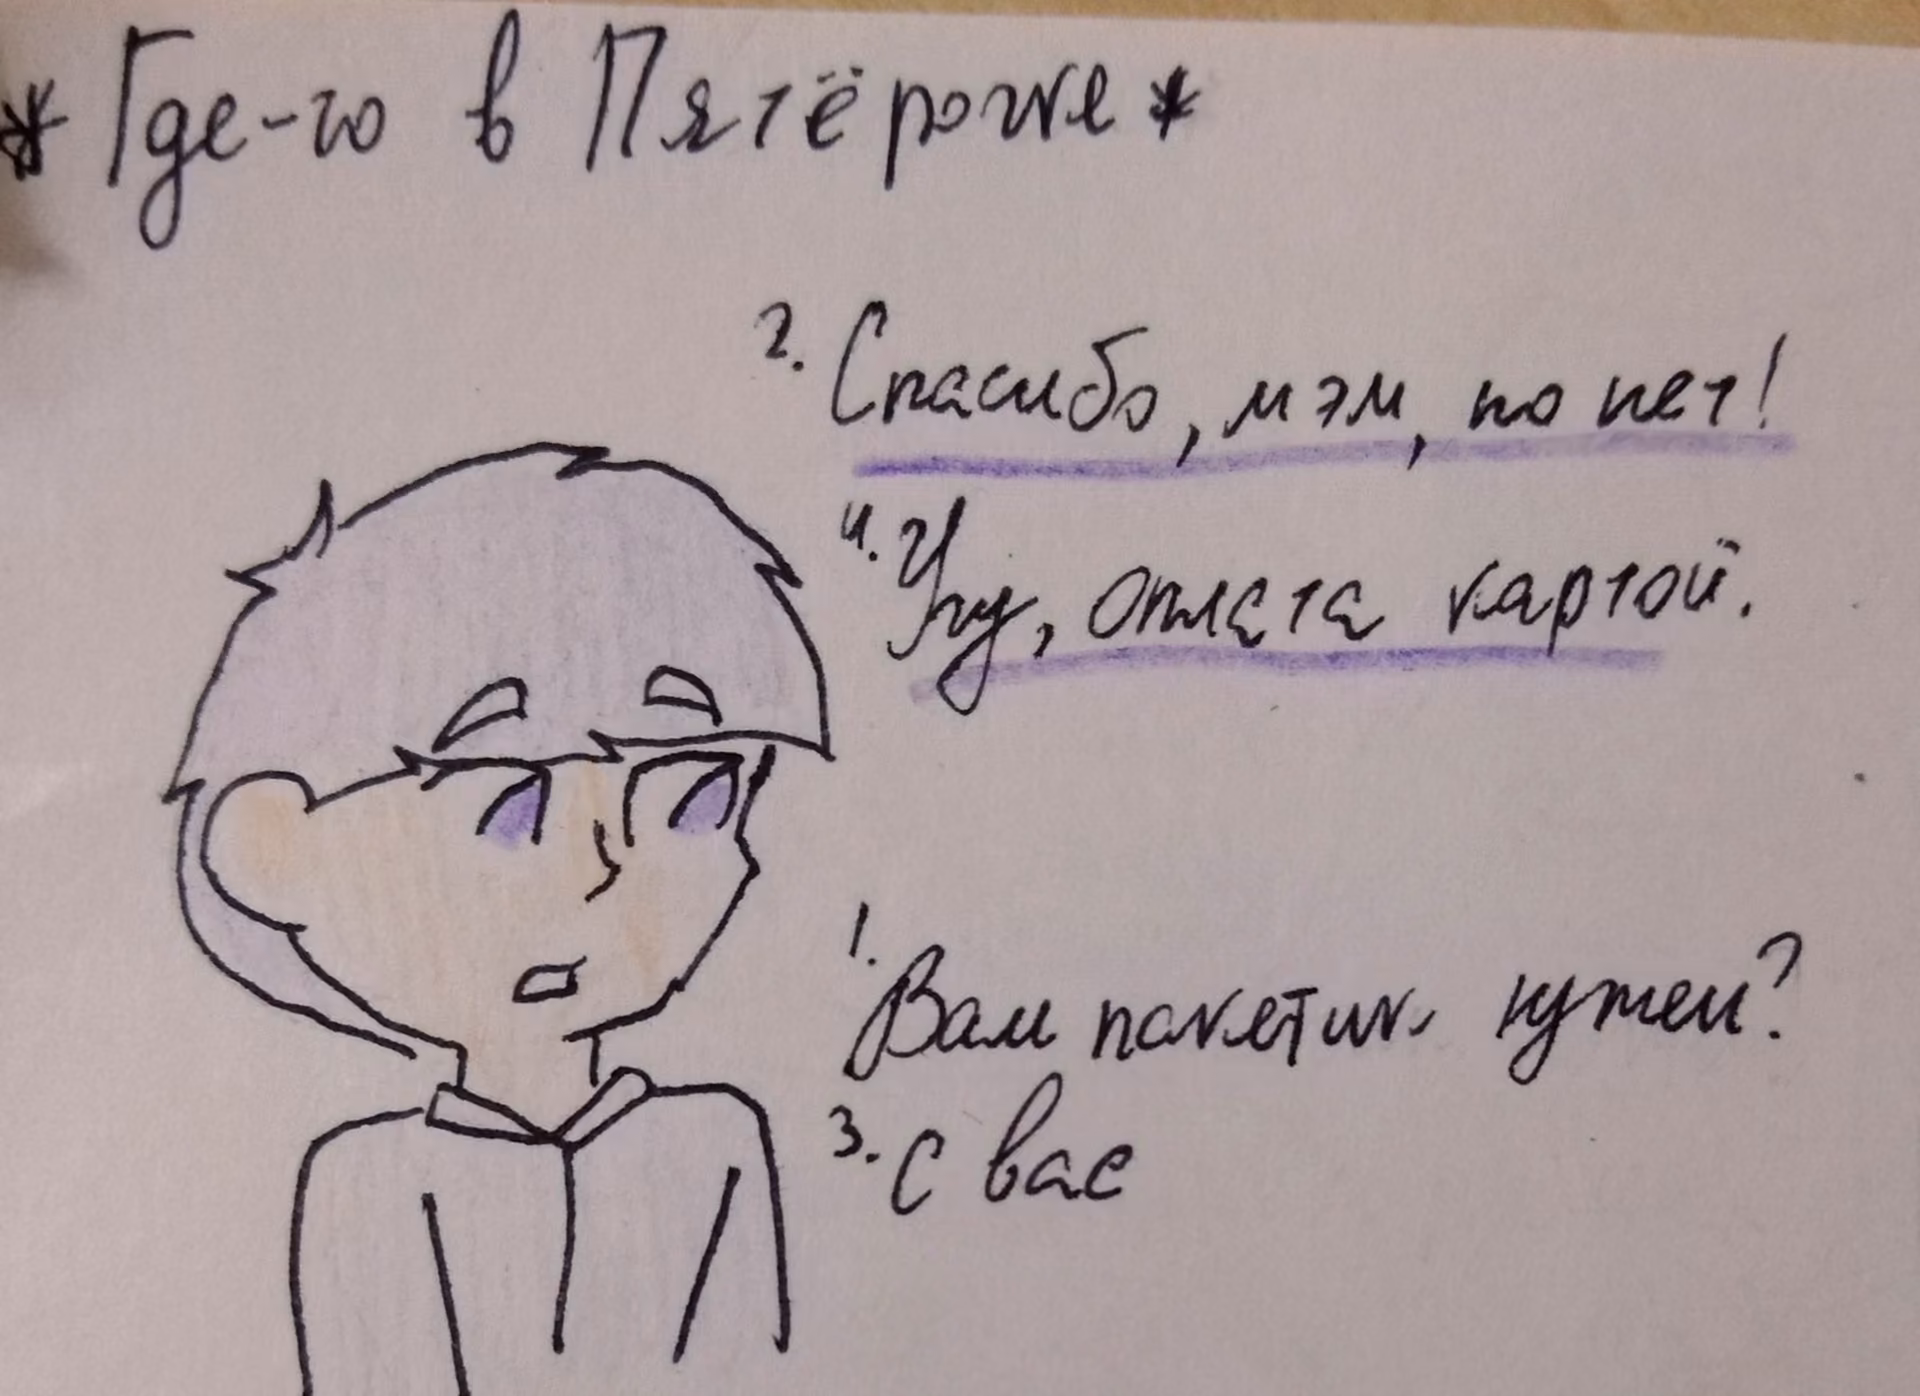 *Где-то в Пятёрочке*
2. Спасибо, мэм, но нет!
4. Угу, оплата картой.
1. Вам пакетик нужен?
3. С вас